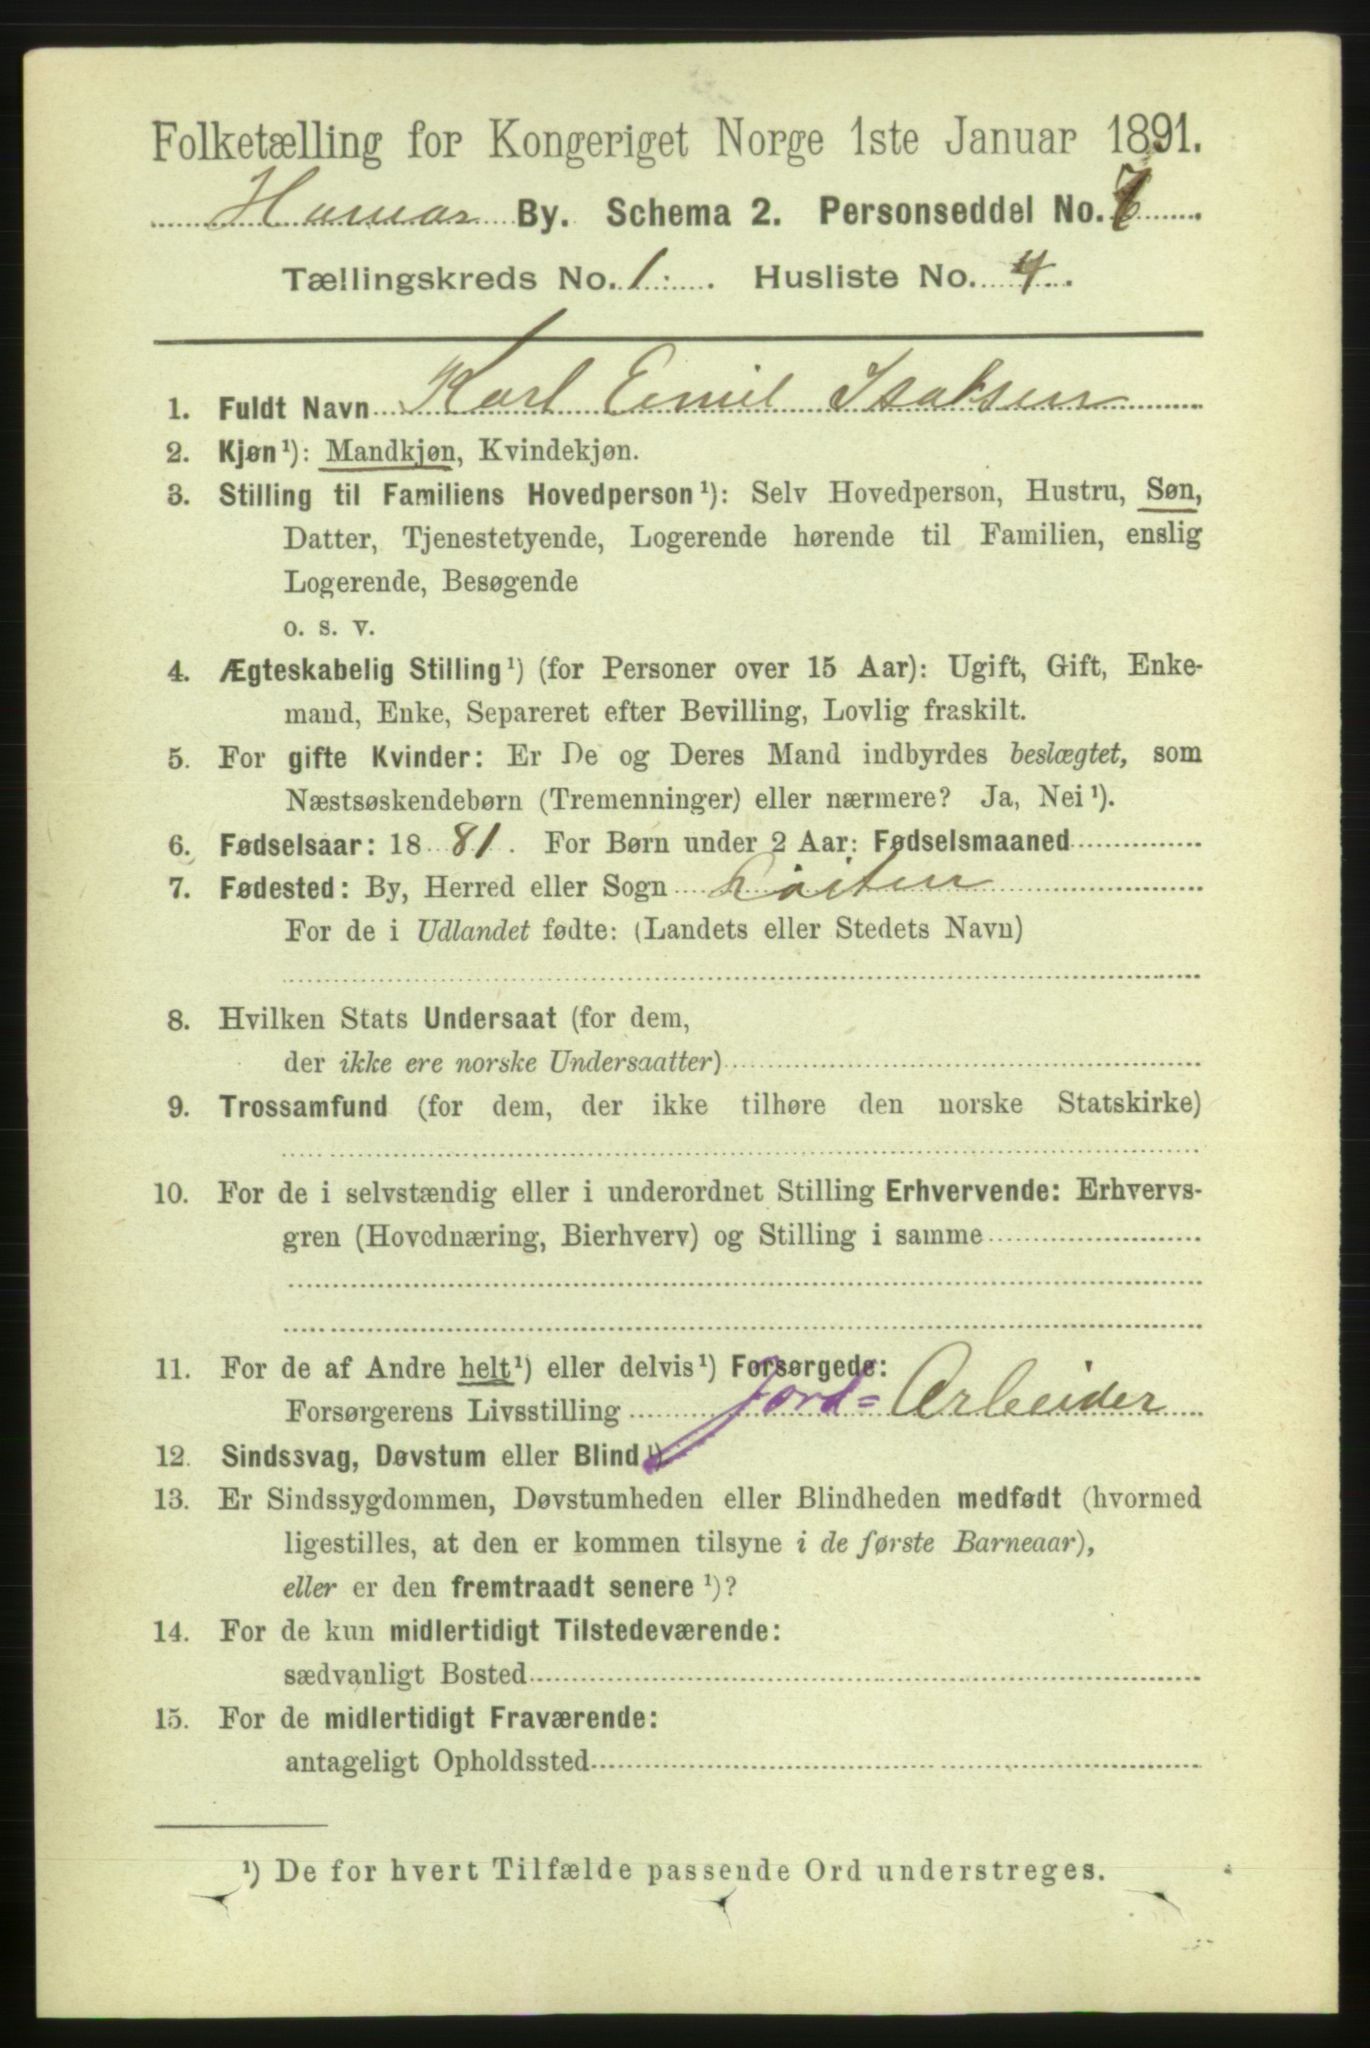 Folketælling for Kongeriget Norge 1ste Januar 1891.
Hamar By. Schema 2. Personseddel No. 7
Tællingskreds No. 1. Husliste No. 4.
1. Fuldt Navn Karl Emil Isaksen
2. Kjøn¹): Mandkjøn, Kvindekjøn.
3. Stilling til Familiens Hovedperson¹): Selv Hovedperson, Hustru, Søn,
Datter, Tjenestetyende, Logerende hørende til Familien, enslig
Logerende, Besøgende
o. s. v.
4. Ægteskabelig Stilling¹) (for Personer over 15 Aar): Ugift, Gift, Enke-
mand, Enke, Separeret efter Bevilling, Lovlig fraskilt.
5. For gifte Kvinder: Er De og Deres Mand indbyrdes beslægtet, som
Næstsøskendebørn (Tremenninger) eller nærmere? Ja, Nei¹).
6. Fødselsaar: 1881. For Børn under 2 Aar: Fødselsmaaned
7. Fødested: By, Herred eller Sogn Løiten
For de i Udlandet fødte: (Landets eller Stedets Navn)
8. Hvilken Stats Undersaat (for dem,
der ikke ere norske Undersaatter)
9. Trossamfund (for dem, der ikke tilhøre den norske Statskirke)
10. For de i selvstændig eller i underordnet Stilling Erhvervende: Erhvervs-
gren (Hovednæring, Bierhverv) og Stilling i samme
11. For de af Andre helt¹) eller delvis¹) Forsørgede:
Forsørgerens Livsstilling Jord= Arbeider
12. Sindssvag, Døvstum eller Blind¹)
13. Er Sindssygdommen, Døvstumheden eller Blindheden medfødt (hvormed
ligestilles, at den er kommen tilsyne i de første Barneaar),
eller er den fremtraadt senere¹)?
14. For de kun midlertidigt Tilstedeværende:
sædvanligt Bosted
15. For de midlertidigt Fraværende:
antageligt Opholdssted
¹) De for hvert Tilfælde passende Ord understreges.